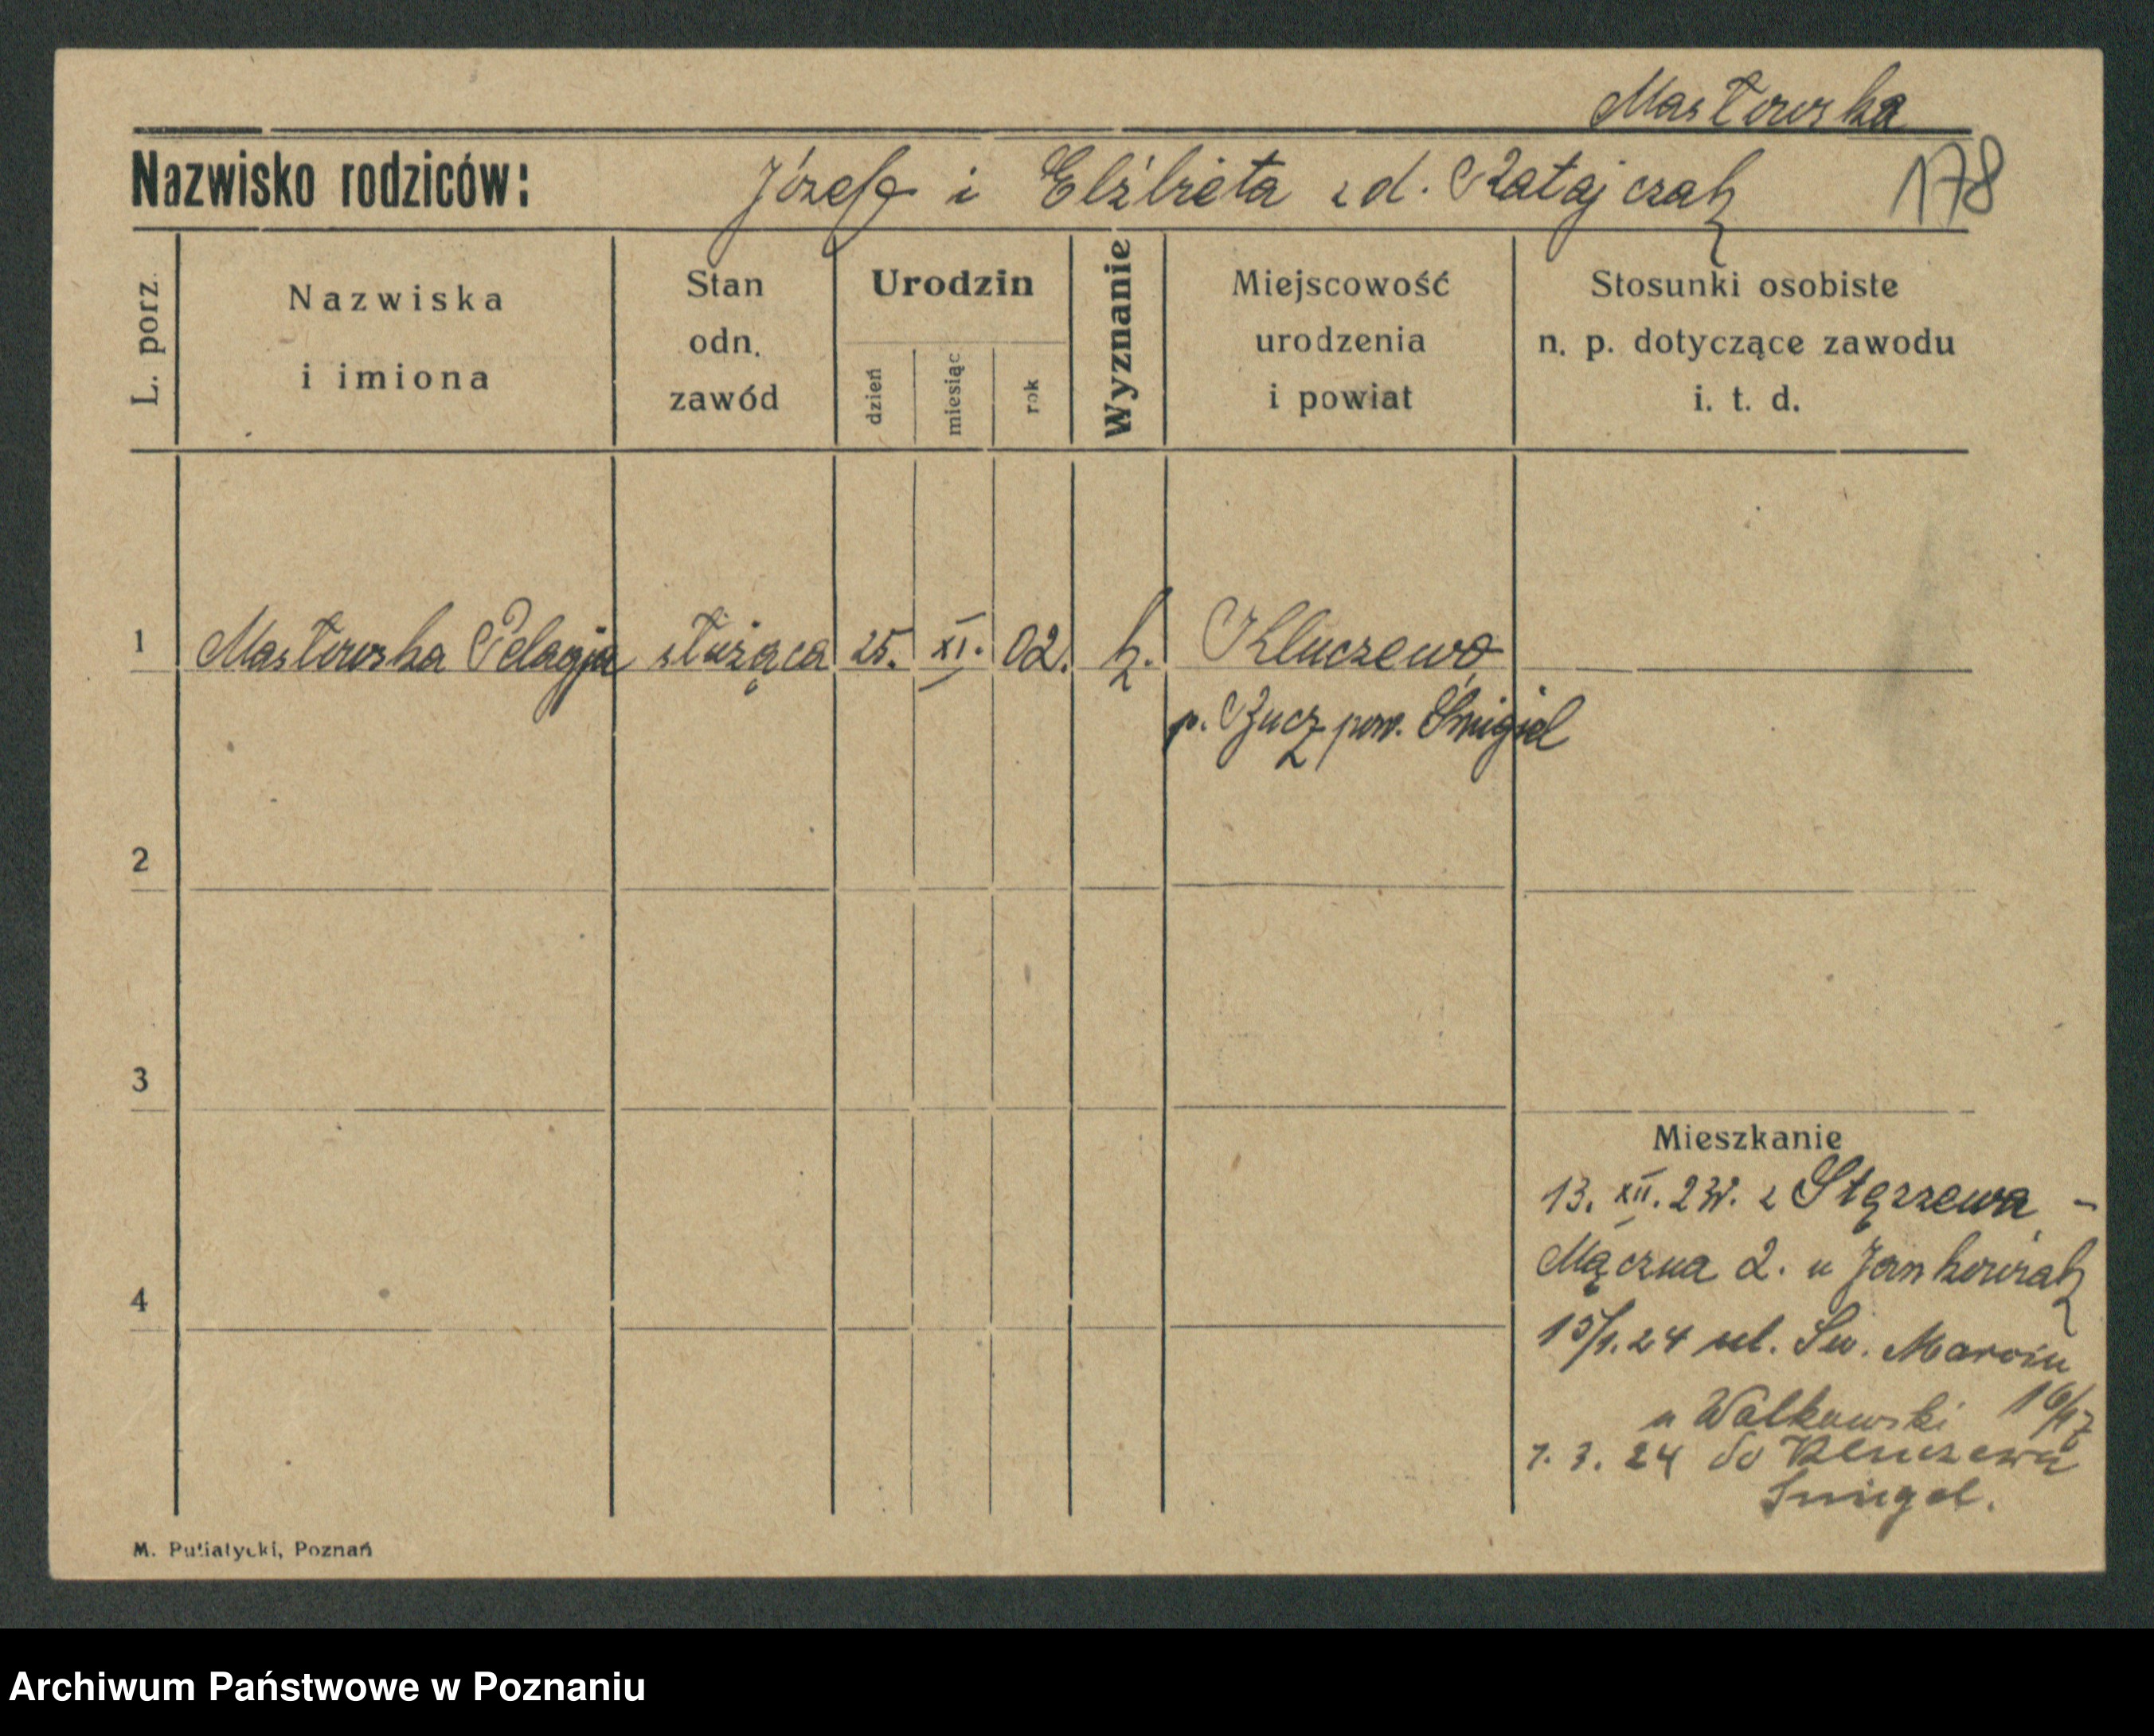 Masłowska
Nazwisko rodziców: Józef i Elżbieta z d. Ratajczak 178
L. porz.
Nazwiska i imiona
Stan odn. zawód
Urodzin
dzień miesiąc rok
Wyznanie
Miejscowość urodzenia i powiat
Stosunki osobiste n. p. dotyczące zawodu i. t. d.
1 Masłowska Pelagja służąca 25. XI. 02. k. Kluczewo
p. Bucz pow. Śmigiel
2
3
Mieszkanie
13. XII. 23r. z Stęszewa -
Mączna 2. u Jankowiak
4
15/1.24 ul. Św. Marcin
u Walkowski
7. 3. 24 do Kluczewa
Śmigel.
M. Putiatycki, Poznań
Archiwum Państwowe w Poznaniu